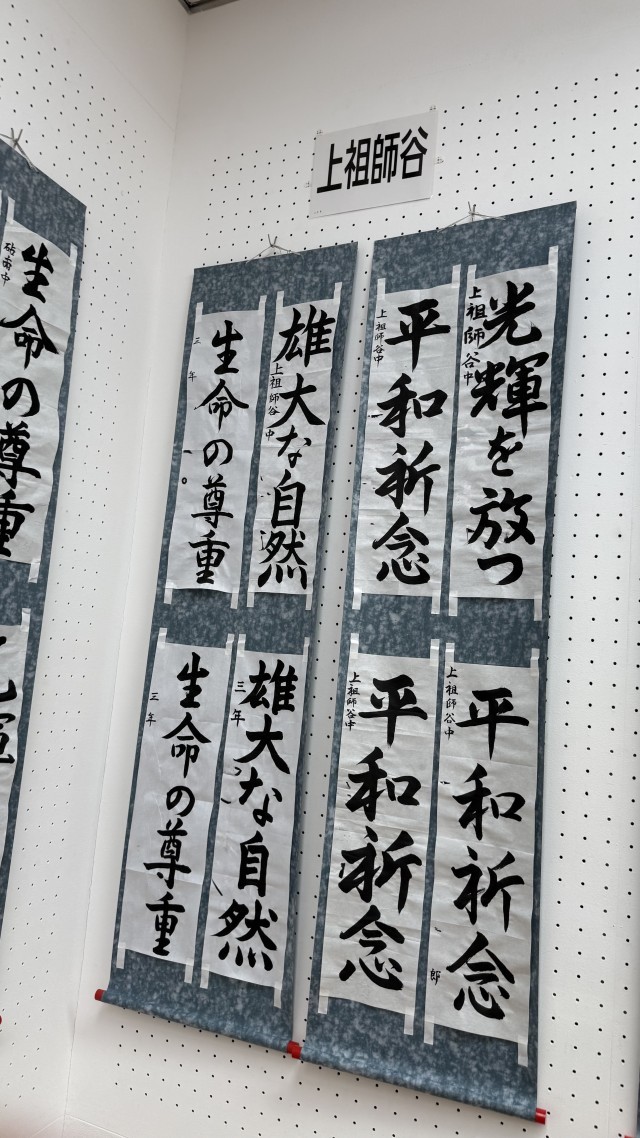 上祖師谷
光輝を放つ
上祖師谷中
平和祈念
上祖師谷中
平和祈念
上祖師谷中
郎
平和祈念
上祖師谷中
雄大な自然
上祖師谷中
生命の尊重
三年
雄大な自然
三年
生命の尊重
三年
生命の尊重
砧南中